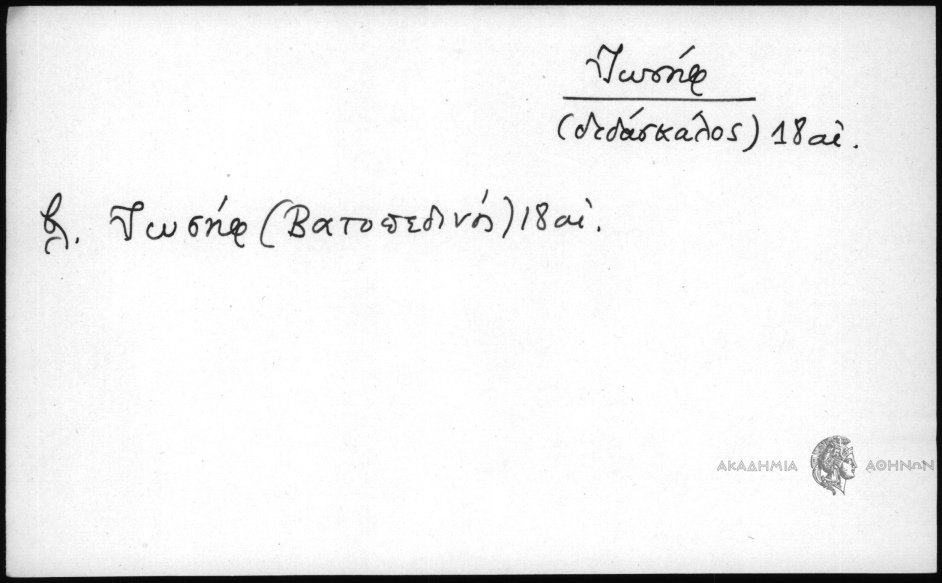 Ἰωσήφ
(διδάσκαλος) 18 αἰ.
βλ. Ἰωσήφ (Βατοπεδινός) 18 αἰ.
ΑΚΑΔΗΜΙΑ ΑΘΗΝΩΝ